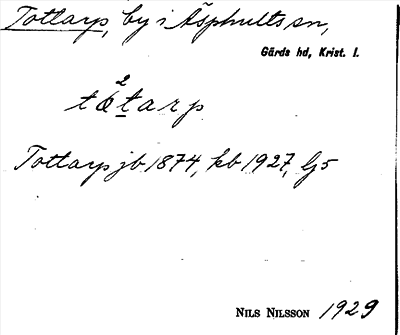 Tottarp, by i Äsphults sn,
Gärds hd, Krist. l.
2
tòtarp
Tottarp jb 1874, kb 1927, lj 5
NILS NILSSON 1929